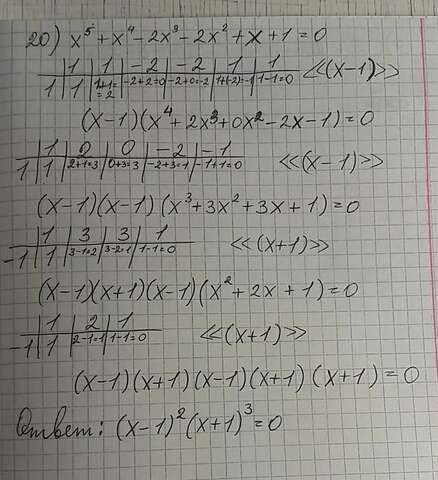 20) x⁵ + x⁴ - 2x³ - 2x² + x + 1 = 0
1 1 -2 -2 1 1
1 1 1+1=2 -2+2=0 -2+0=-2 1+(-2)=-1 1-1=0 <<(x-1)>>
(x-1)(x⁴ + 2x³ + 0x² - 2x - 1) = 0
1 0 0 -2 -1
1 1 2+1=3 0+3=3 -2+3=1 -1+1=0 <<(x-1)>>
(x-1)(x-1)(x³ + 3x² + 3x + 1) = 0
1 3 3 1
-1 1 3-1=2 3-2=1 1-1=0 <<(x+1)>>
(x-1)(x+1)(x-1)(x² + 2x + 1) = 0
1 2 1
-1 1 2-1=1 1-1=0 <<(x+1)>>
(x-1)(x+1)(x-1)(x+1)(x+1) = 0
Ответ: (x-1)²(x+1)³ = 0